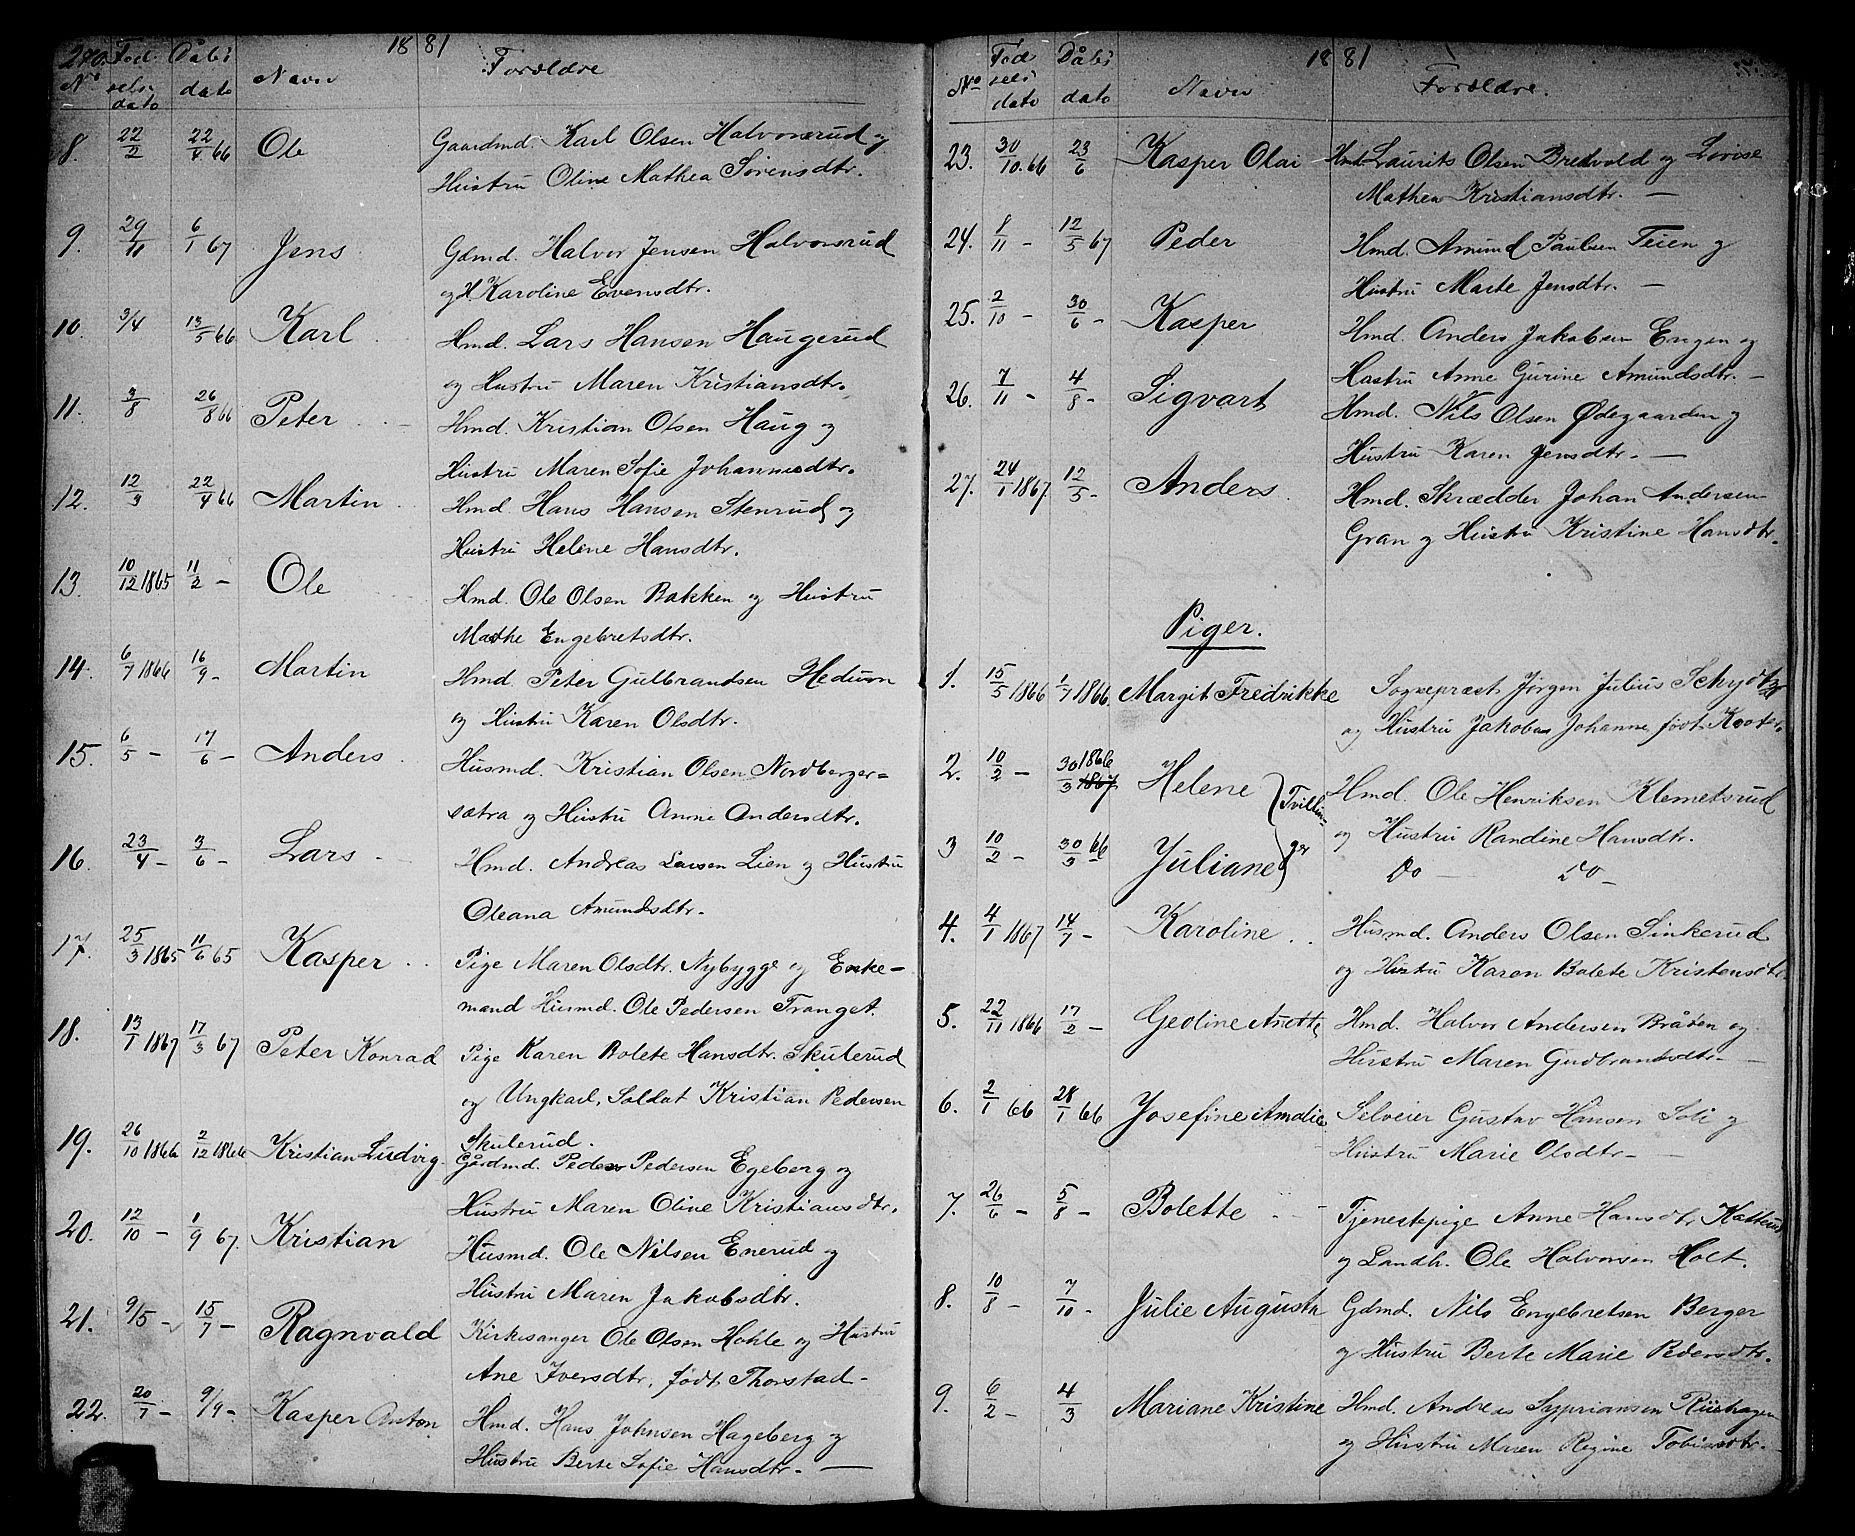 270. 1881
No Fødselsdato Dåbsdato Navn Forældre
8. 22/2 22/4 66 Ole Gaardmd. Karl Olsen Halvorsrud og
Hustru Oline Mathea Sørensdtr.
9. 29/11 6/1 67 Jens Gdmd. Halvor Jensen Halvorsrud
og H. Karoline Evensdtr.
10. 3/4 13/5 66 Karl Hmd. Lars Hansen Haugerud
og Hustru Maren Kristiansdtr.
11. 3/8 26/8 66 Peter Hmd. Kristian Olsen Haug og
Hustru Maren Sofie Johannesdtr.
12. 12/3 22/4 66 Martin Hmd Hans Hansen Stenrud og
Hustru Helene Hansdtr.
13. 10/12 1865 11/2 - Ole Hmd. Ole Olsen Bakken og Hustru
Mathe Engebretsdtr.
14. 6/7 1866 16/9 - Martin Hmd. Peter Gulbrandsen
og Hustru Karen Olsdtr.
15. 6/5 - 17/6 - Anders Husmd. Kristian Olsen Nordberger=
sætra og Hustru Anne Andersdtr.
16. 23/4 - 3/6 - Lars Hmd. Andreas Larsen Lien og Hustru
Oleana Amundsdtr.
17. 25/3 1865 11/6 65 Kasper Pige Maren Olsdtr. Nybygge og Enke-
mand Husmd. Ole Pedersen Tranget.
18. 13/1 1867 17/3 67 Peter Konrad Pige Karen Bolete Hansdtr. Skulerud
og Ungkarl, Soldat Kristian Pedersen
Skulerud.
19. 26/10 1866 2/12 1866 Kristian Ludvig Gårdmd. Peder Pedersen Egeberg og
Hustru Maren Oline Kristiansdtr.
20. 12/10 - 1/9 67. Kristian Husmd. Ole Nilsen Enerud og
Hustru Maren Jakobsdtr.
21. 9/5 - 15/7 - Ragnvald Kirkesanger Ole Olsen Hohle og Hustru
Ane Iversdtr, født Thorstad-
22. 20/7 - 9/9 - Kasper Anton Hmd. Hans Johnsen Hageberg og
Hustru Berte Sofie Hansdtr. -
1881
No Fødselsdato Dåbsdato Navn Forældre.
23. 30/10. 66 23/6 Kasper Olai Hmd Laurits Olsen Bredvold og Lovise
Mathea Kristiansdtr. -
24. 8/11 - 12/5 67 Peder Hmd. Amund Paulsen Teien og
Hustru Marte Jensdtr. -
25. 2/10 - 30/6 - Kasper Hmd. Anders Jakobsen Engen og
Hustru Anne Gurine Amundsdtr. -
26. 7/11 - 4/8 - Sigvart Hmd. Nils Olsen Ødegaarden og
Hustru Karen Jensdtr. -
27. 24/1 1867. 12/5 - Anders. Hmd. Skrædder Johan Andersen
Gran og Hustru Kristine Hansdtr.
Piger.
1. 15/5 1866 1/7 1866. Margit Fredrikke Sognepræst Jørgen Julius Schydtz
og Hustru Jakoba Johanne, født
2. 10/2 - 30/3 1866 1867 Helene Tvillin- Hmd. Ole Henriksen Klemetsrud
og Hustru Randine Hansdtr.
3 10/2 - 30/3 66 Juliane ger Do - Do -
4. 4/1 1867 14/7 - Karoline Husmd. Anders Olsen Sinkerud
og Hustru Karen Bolete Kristensdtr
5. 22/11 1866 17/2 - Geoline Anette Hmd. Halvor Andersen Bråten og
Hustru Maren Gudbrandsdtr -
6. 2/1 66 28/1 66 Josefine Amalie Selveier Gustav Hansen Soli og
Hustru Marie Olsdtr -
7. 26/6 - 5/8 - Bolette Tjenestepige Anne Hansdtr Katterud
og Landh. Ole Halvorsen Holt.
8. 10/8 - 7/10 - Julie Augusta Gdmd. Nils Engebretsen Berger
og Hustru Berte Marie Pedersdtr.
9. 6/2 - 4/3 Mariane Kristine Hmd. Andreas Sypriansen
og Hustru Maren Regine Tobiasdtr. -